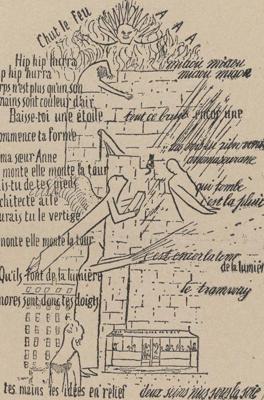 Chut le feu
A A A A
Hip hip hurra
miaou miaou
p hip hurra
miaou miaou
rps n'est plus qu'un son
mains sont couleur d'air
Baisse-toi une étoile
tout ce bruit entos une
mmence ta forme
ma sœur Anne
monte elle monte la tour
is-tu de tes pieds
qui tombe
chitecte aile
c'est la pluie
urais tu le vertige
monte elle monte la tour
c'est encor la tour
Qu'ils font de la lumière
de la lumière
nores sont donc tes doigts
le tramway
tes mains les idées en relief
deux seins nus sous la soie